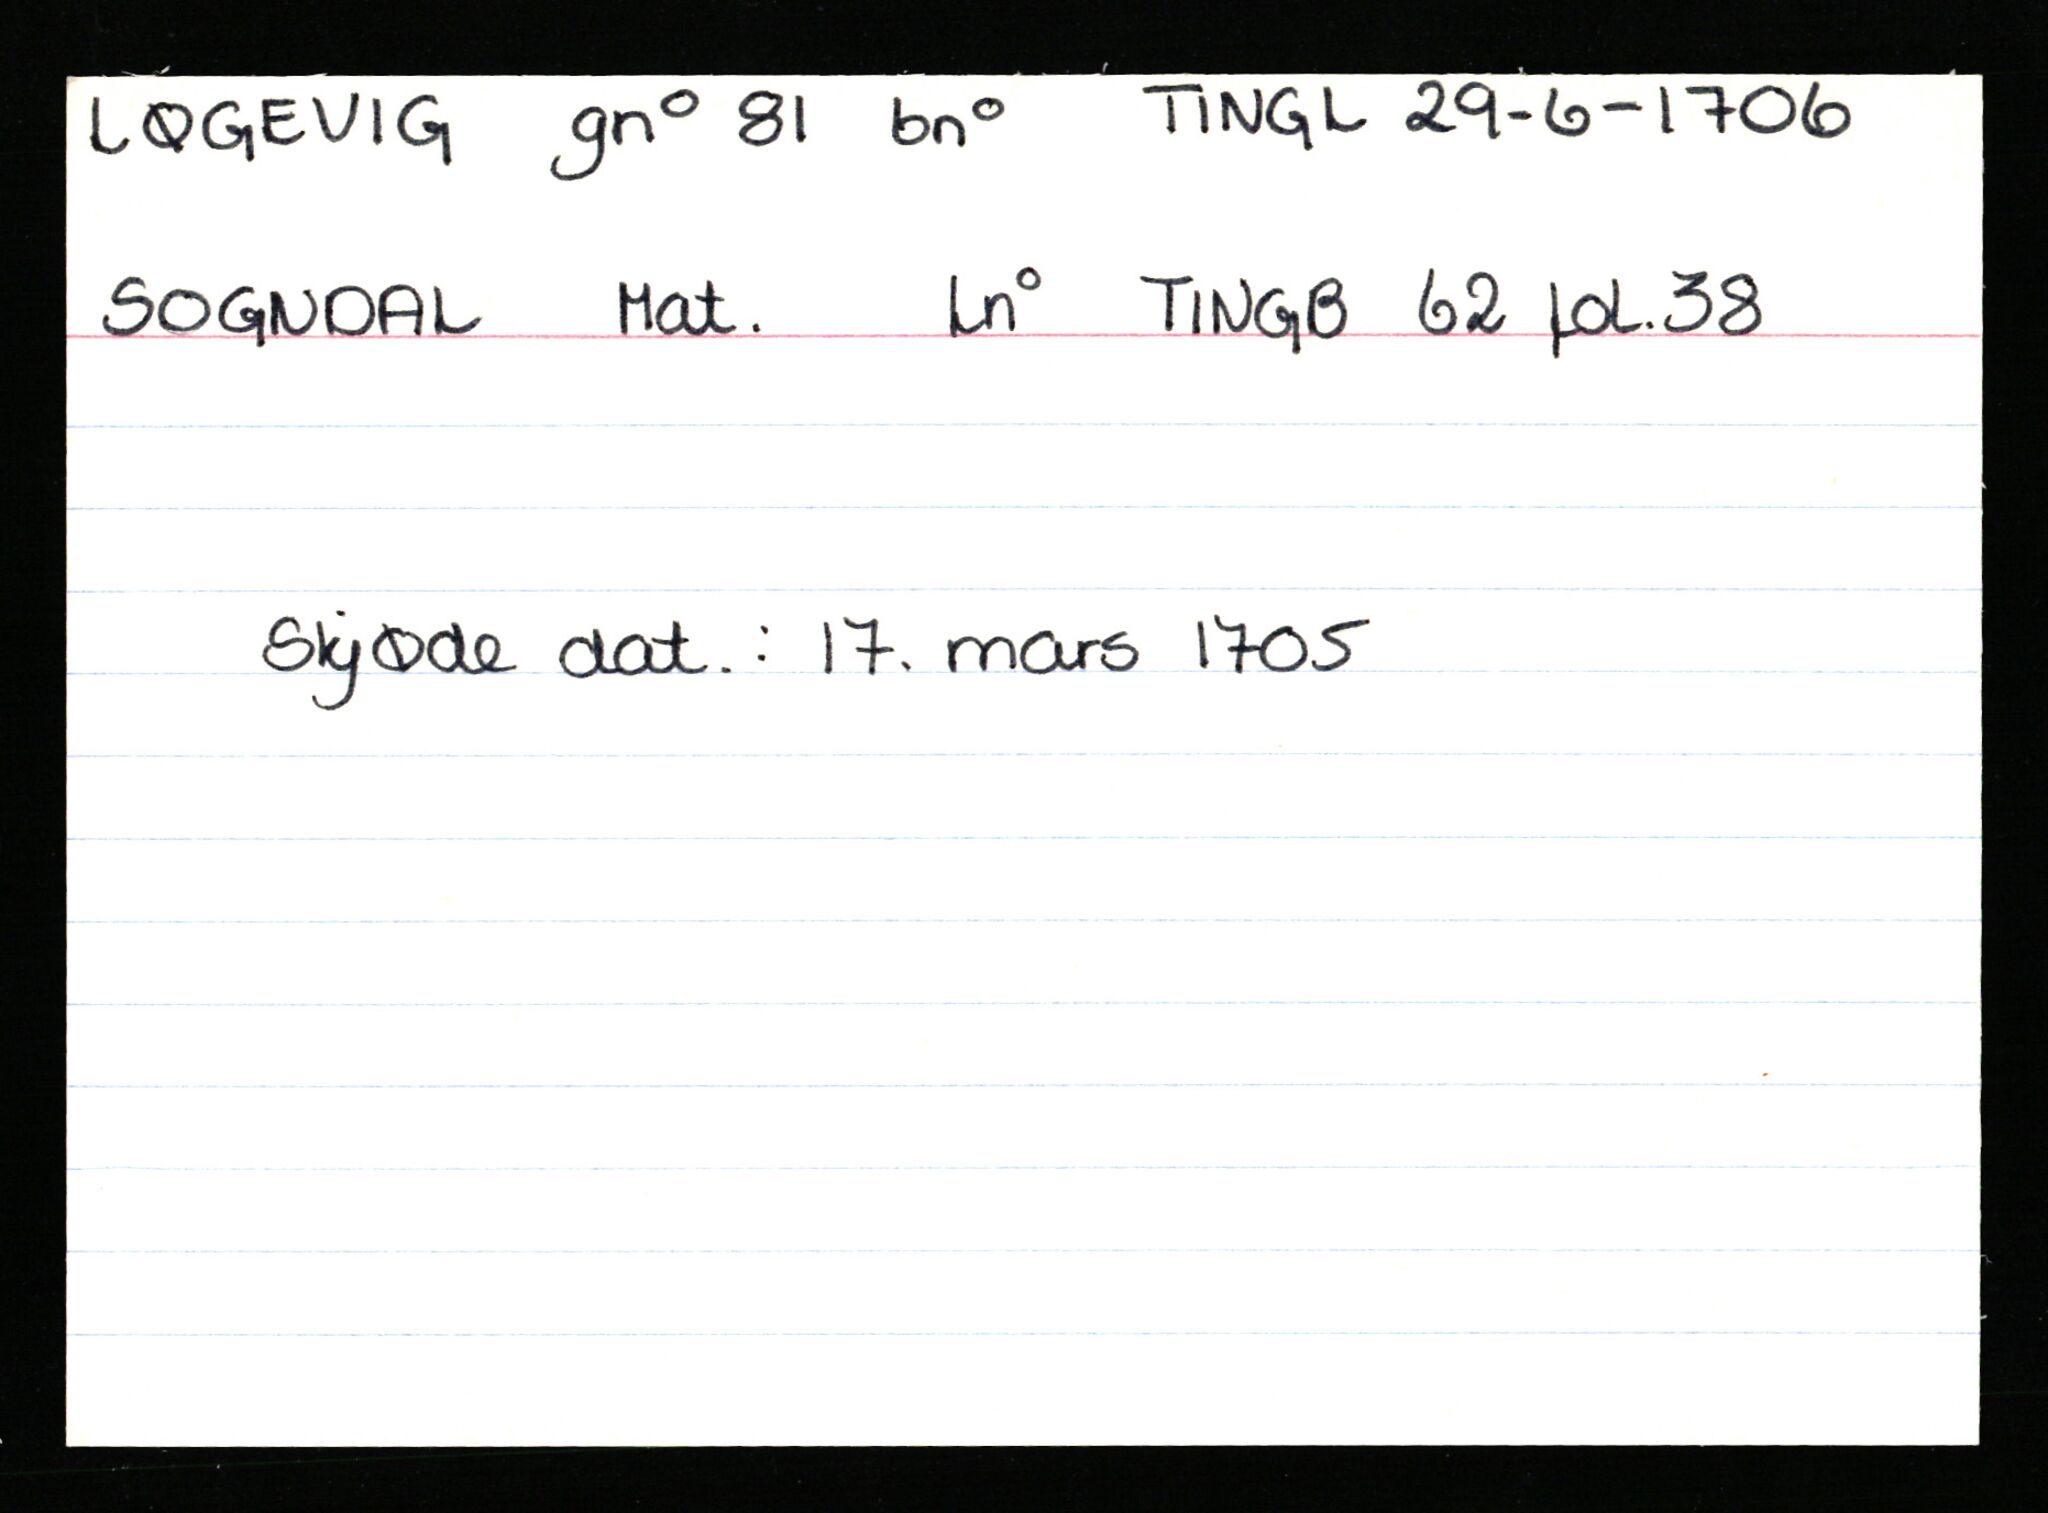 LØGEVIG gnº 81 bnº TINGL 29-6-1706
SOGNDAL Mat. Lnº TINGB 62 fol. 38
Skjøde dat.: 17. mars 1705